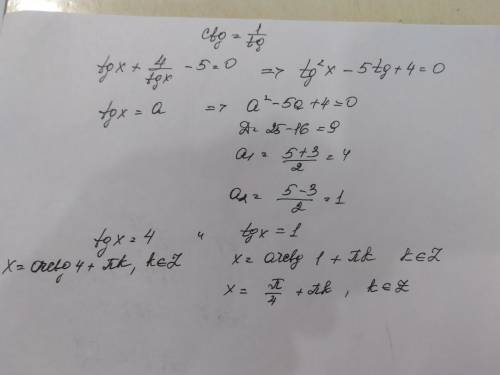 ctg = 1/tg
tgx + 4/tgx - 5 = 0 => tg²x - 5tg + 4 = 0
tgx = a => a² - 5a + 4 = 0
D = 25 - 16 = 9
a₁ = (5+3)/2 = 4
a₂ = (5-3)/2 = 1
tgx = 4 и tgx = 1
x = arctg 4 + πk, k∈Z x = arctg 1 + πk k∈Z
x = π/4 + πk, k∈Z